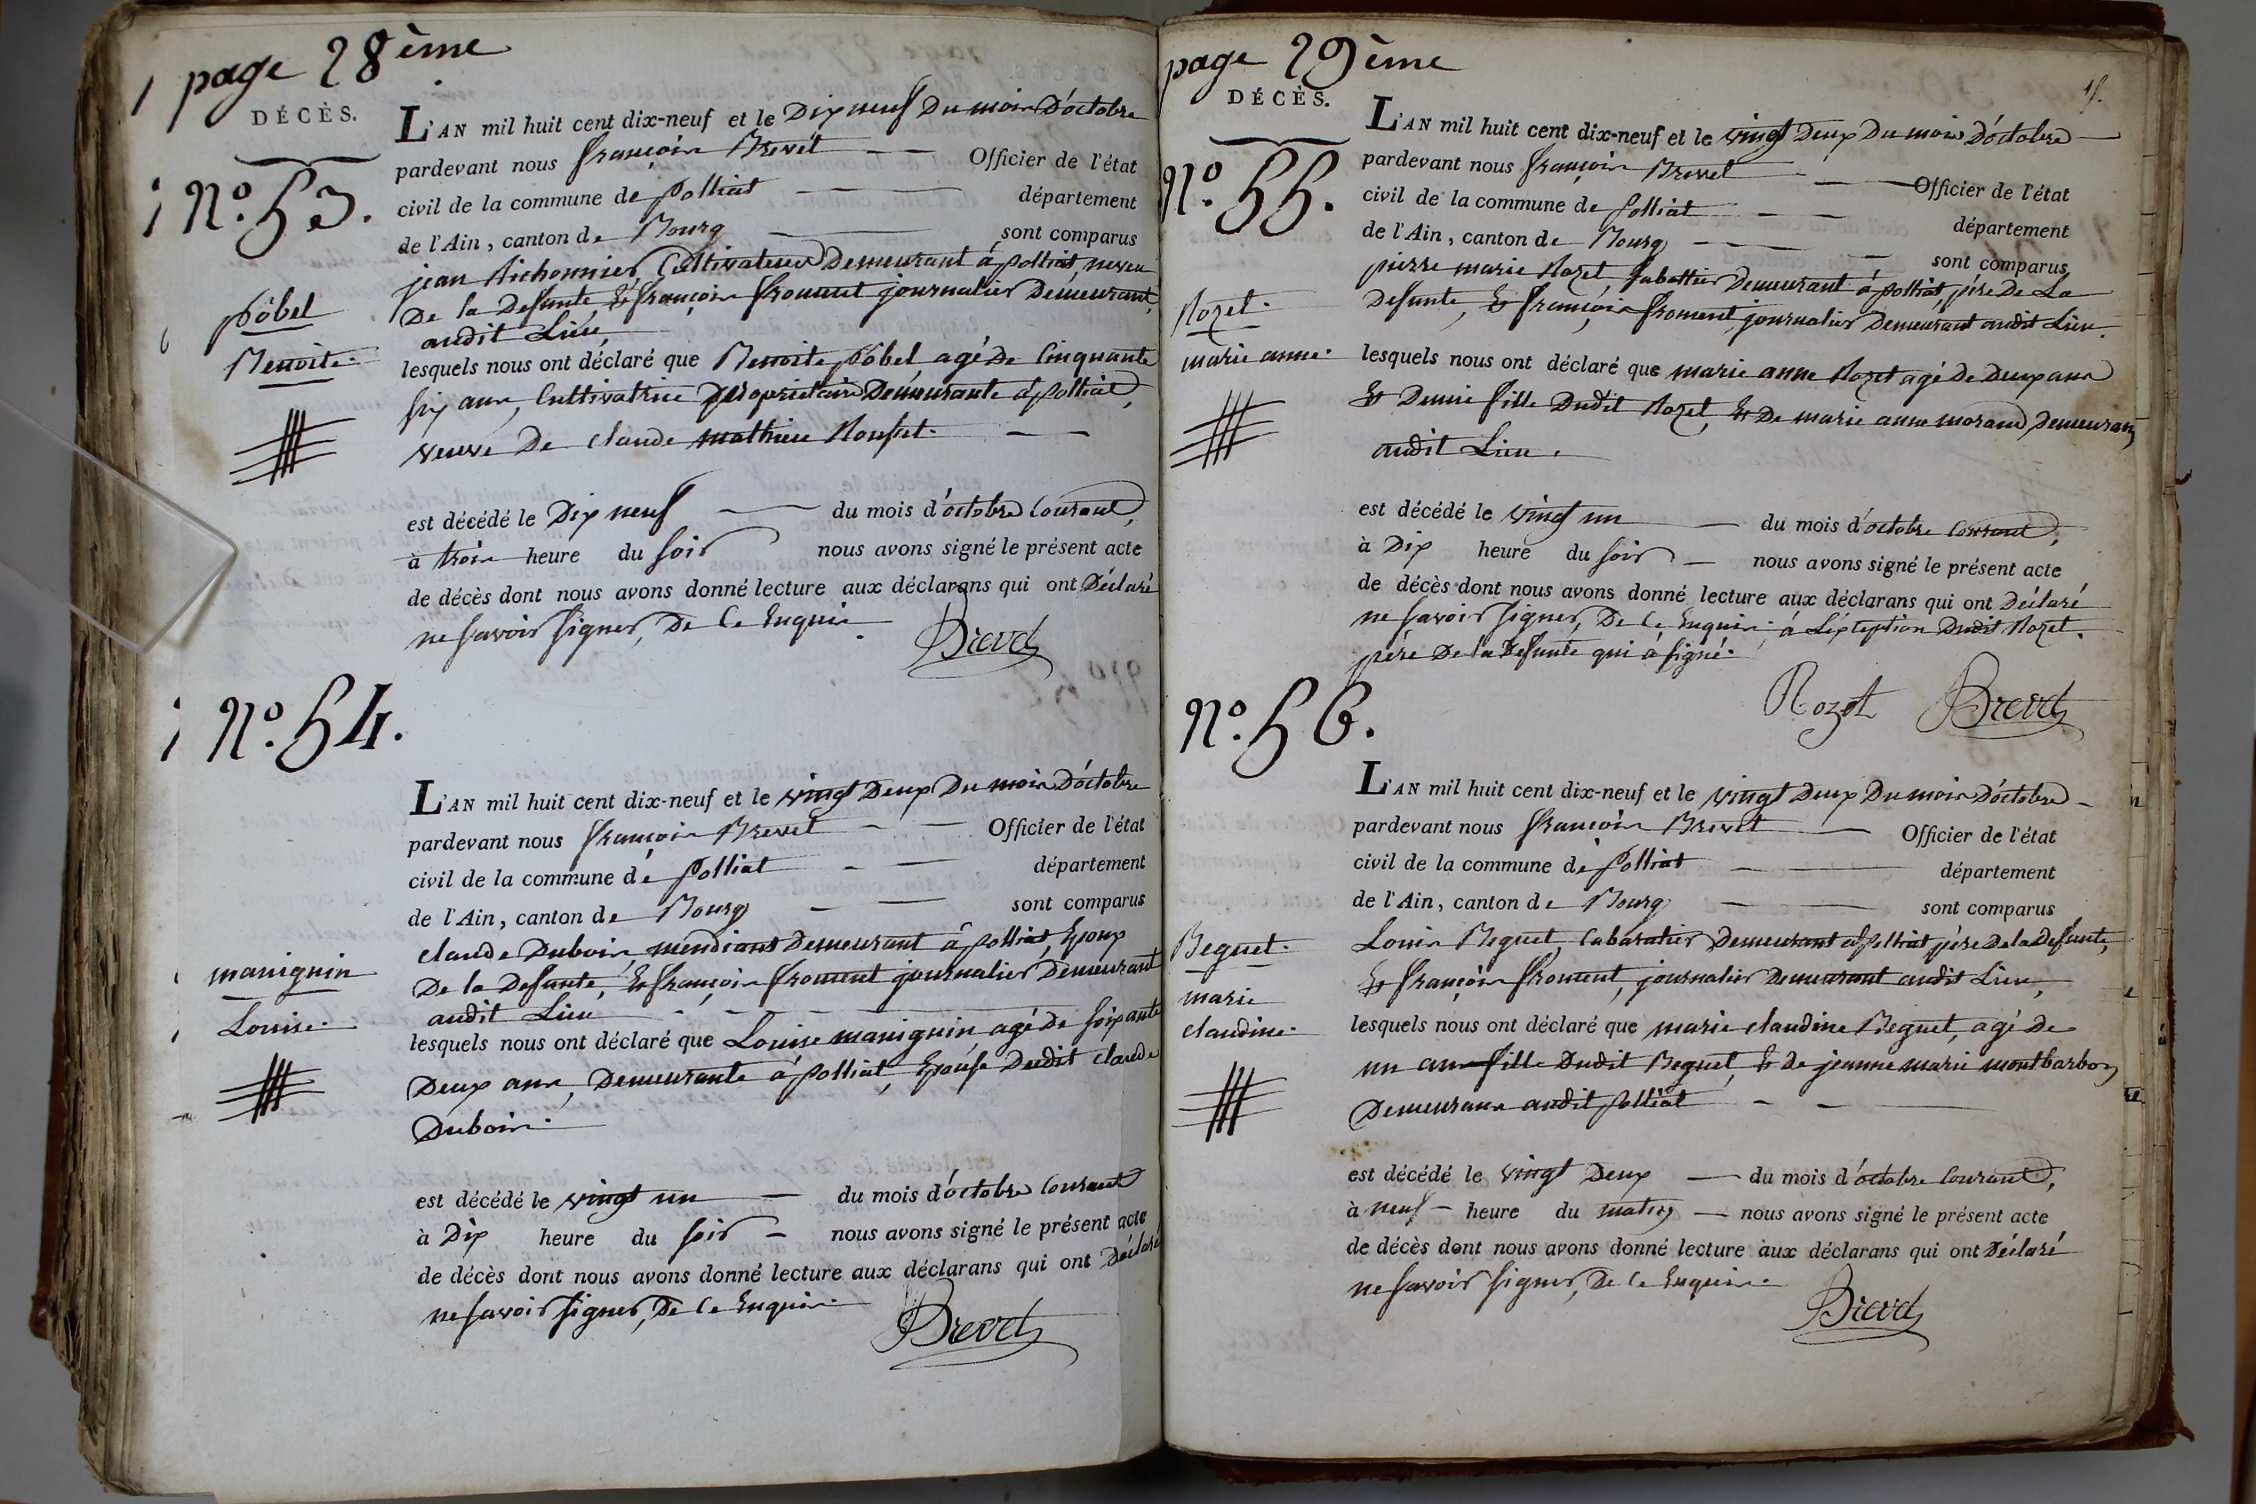 page 28ème
DÉCÈS.
N.o 53.
pobel
Benoite.
L'AN mil huit cent dix-neuf et le Dix neuf Du mois D'octobre
pardevant nous françois Brevet Officier de l'état
civil de la commune de polliat département
de l'Ain, canton de Bourg sont comparus
jean Cultivateur Demeurant á polliat, neveu
De la Defunte, & françois froment journalier Demeurant
audit Lieu,
lesquels nous ont déclaré que Benoite pobel agé De Cinquante
six ans, Cultivatrice propriétaire Demeurante á polliat,
veuve De claude mathieu Rousset.
est décédé le Dix neuf du mois d'octobre Courant,
à trois heure du soir nous avons signé le présent acte
de décès dont nous avons donné lecture aux déclarans qui ont Déclaré
ne savoir signer, De Ce Enquis.
Brevet
N.o 54.
maniguin
Louise.
L'AN mil huit cent dix-neuf et le vingt Deux Du mois D'octobre
pardevant nous françois Brevet Officier de l'état
civil de la commune de polliat département
de l'Ain, canton de Bourg sont comparus
claude Dubois, mendiant Demeurant á polliat, Epoux
De la Defunte, & françois froment journalier Demeurant
audit Lieu
lesquels nous ont déclaré que Louise maniguin agé De soixante
Deux ans, Demeurante á polliat, Epouse Dudit claude
Dubois.
est décédé le vingt un du mois d'octobre Courant
à Dix heure du soir nous avons signé le présent acte
de décès dont nous avons donné lecture aux déclarans qui ont Déclaré
ne savoir signer, De Ce Enquis.
Brevet
page 29ème
DÉCÈS.
N.o 55.
Rozet.
marie anne.
L'AN mil huit cent dix-neuf et le vingt Deux Du mois D'octobre
pardevant nous françois Brevet Officier de l'état
civil de la commune de polliat département
de l'Ain, canton de Bourg sont comparus
pierre marie Rozet, sabottier Demeurant á polliat, pére De La
Defunte, & françois froment, journalier Demeurant audit Lieu.
lesquels nous ont déclaré que marie anne Rozet agé De Deux ans
& Demie fille Dudit Rozet, & De marie anne morand Demeurans
audit Lieu.
est décédé le vingt un du mois d'octobre Courant,
à Dix heure du soir nous avons signé le présent acte
de décès dont nous avons donné lecture aux déclarans qui ont Déclaré
ne savoir signer, De Ce Enquis. á L'éxception Dudit Rozet.
pére De la Defunte qui á signé.
Rozet Brevet
N.o 56.
Beguet.
marie
claudine.
L'AN mil huit cent dix-neuf et le vingt Deux Du mois D'octobre
pardevant nous françois Brevet Officier de l'état
civil de la commune de polliat département
de l'Ain, canton de Bourg sont comparus
Louis Beguet, Cabaratier Demeurant á polliat pére De la Defunte,
& françois froment, journalier Demeurant audit Lieu,
lesquels nous ont déclaré que marie claudine Beguet, agé De
un an fille Dudit Beguet, & de jeanne marie montbarbon
Demeurans audit polliat
est décédé le vingt Deux du mois d'octobre Courant,
à neuf heure du matin nous avons signé le présent acte
de décès dont nous avons donné lecture aux déclarans qui ont Déclaré
ne savoir signer, De Ce Enquis.
Brevet